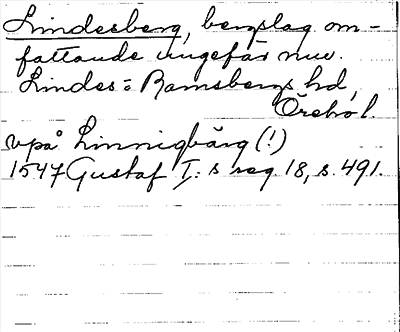 Lindesberg, bergslag om-
fattande ungefär nuv.
Lindes- o Ramsbergs hd,
Örebro l.
vpå Linnigbärg (!)
1547 Gustaf I:s reg. 18, s. 491.